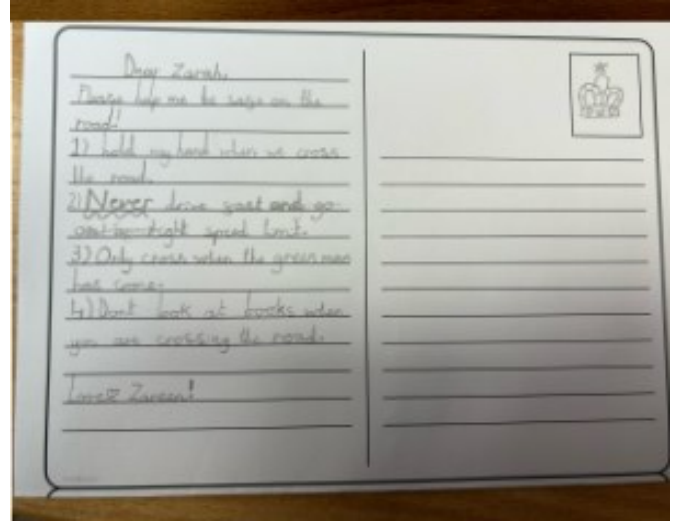 Dear Zarah,
Please help me be safe on the
road!
1) hold my hand when we cross
the road.
2) Never drive fast and go
right speed limit.
3) Only cross when the green man
has come.
4) Dont look at books when
you are crossing the road.
Love Zareen!